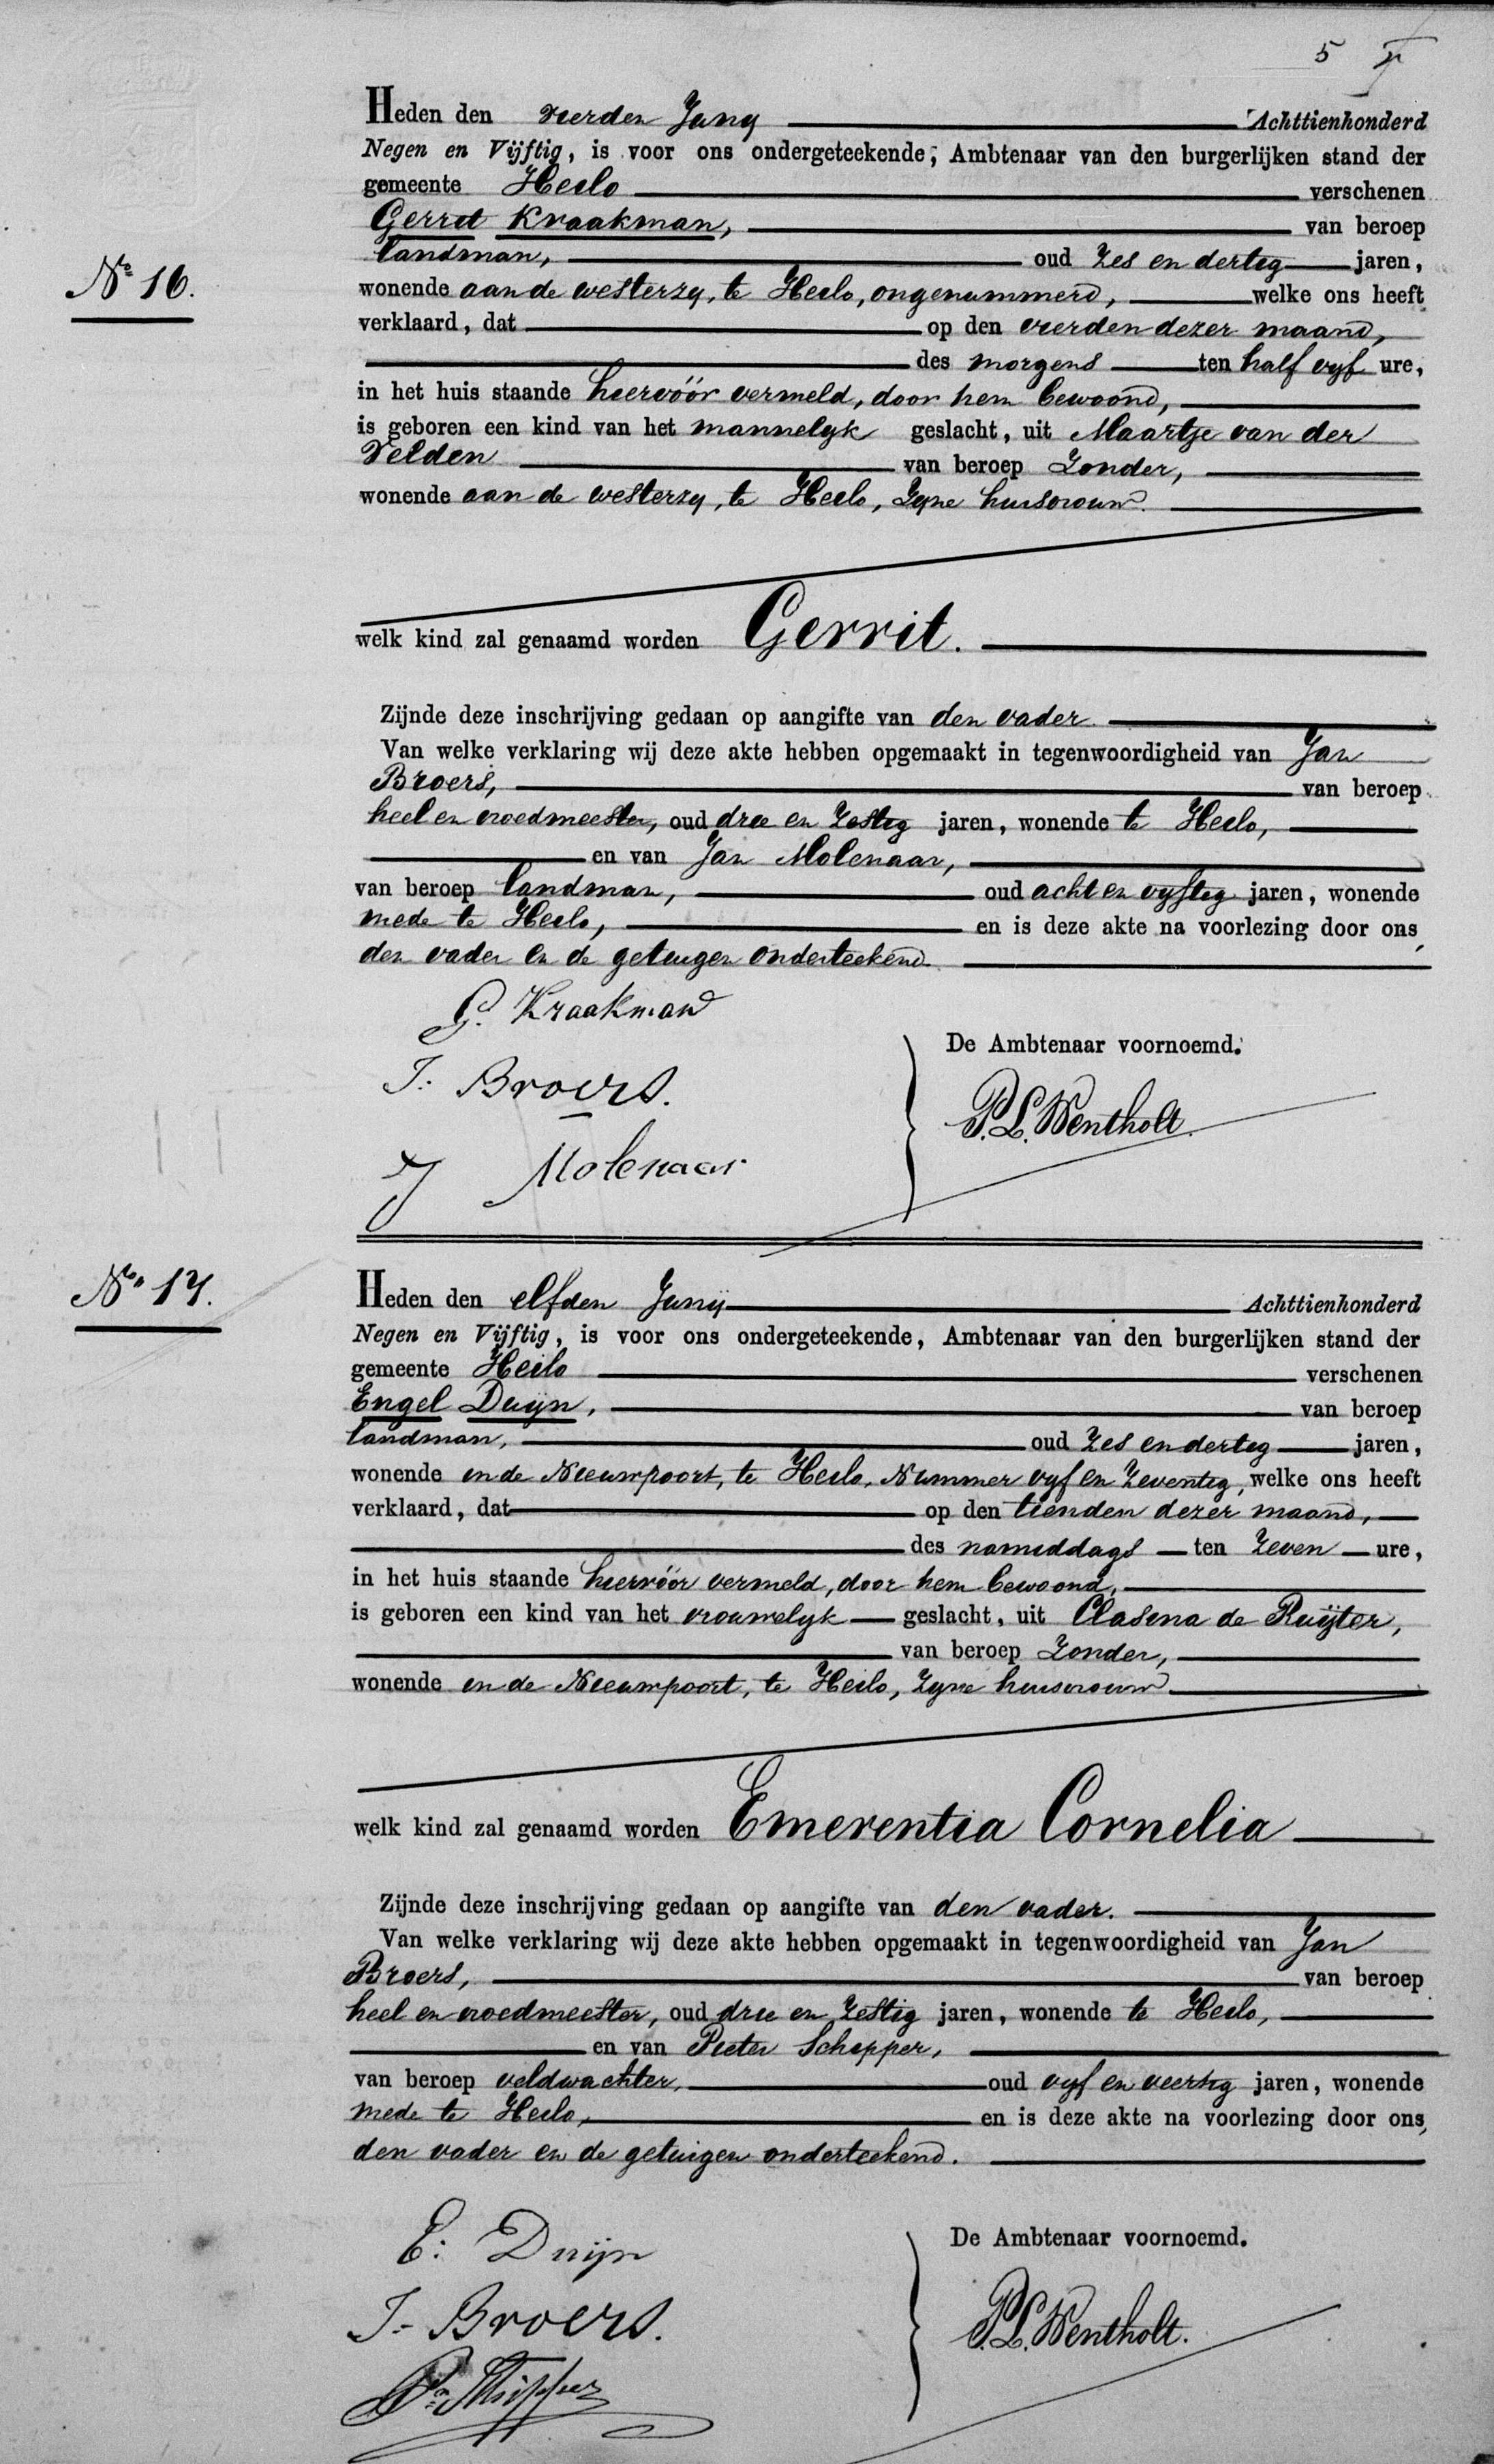 5
Heden den vierden Juny Achttienhonderd
Negen en Vijftig, is voor ons ondergeteekende, Ambtenaar van den burgerlijken stand der
gemeente Heilo verschenen
Gerrit Kraakman, van beroep
No 16.
landman, oud zes en dertig jaren,
wonende aan de westerzy, te Heilo, ongenummerd, welke ons heeft
verklaard, dat op den vierden dezer maand,
des morgens ten half vyf ure,
in het huis staande hiervóór vermeld, door hem bewoond,
is geboren een kind van het mannelyk geslacht, uit Maartje van der
Velden van beroep zonder,
wonende aan de westerzy, te Heilo, zyne huisvrouw.
welk kind zal genaamd worden Gerrit.
Zijnde deze inschrijving gedaan op aangifte van den vader.
Van welke verklaring wij deze akte hebben opgemaakt in tegenwoordigheid van Jan
Broers, van beroep
heel en vroedmeester, oud drie en zestig jaren, wonende te Heilo,
en van Jan Molenaar,
van beroep landman, oud acht en vyftig jaren, wonende
mede te Heilo, en is deze akte na voorlezing door ons,
den vader en de getuigen onderteekend.
G. Kraakman
De Ambtenaar voornoemd.
J. Broers.
P. L. Wentholt.
J Molenaar
No 17.
Heden den elfden Junij Achttienhonderd
Negen en Vijftig, is voor ons ondergeteekende, Ambtenaar van den burgerlijken stand der
gemeente Heilo verschenen
Engel Duijn, van beroep
landman, oud zes en dertig jaren,
wonende in de Nieuwpoort, te Heilo, Nummer vyf en zeventig, welke ons heeft
verklaard, dat op den tienden dezer maand,
des namiddags ten zeven ure,
in het huis staande hiervóór vermeld, door hem bewoond,
is geboren een kind van het vrouwelyk geslacht, uit Clasina de Ruijter,
van beroep zonder,
wonende in de Nieuwpoort, te Heilo, zyne huisvrouw
welk kind zal genaamd worden Emerentia Cornelia
Zijnde deze inschrijving gedaan op aangifte van den vader.
Van welke verklaring wij deze akte hebben opgemaakt in tegenwoordigheid van Jan
Broers, van beroep
heel en vroedmeester, oud drie en zestig jaren, wonende te Heilo,
en van Pieter Schipper,
van beroep veldwachter, oud vyf en veertig jaren, wonende
mede te Heilo, en is deze akte na voorlezing door ons,
den vader en de getuigen onderteekend.
E: Duijn
De Ambtenaar voornoemd.
J. Broers.
P. L. Wentholt.